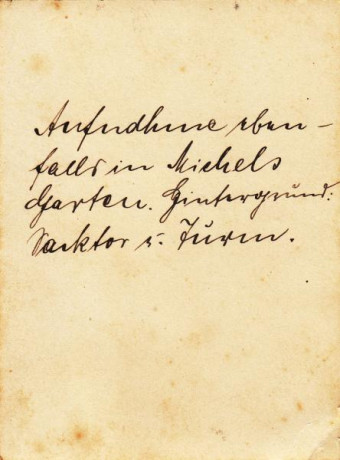 Aufnahme eben-
falls in Michels
Garten. Hintergrund:
Sacktor u. Turm.